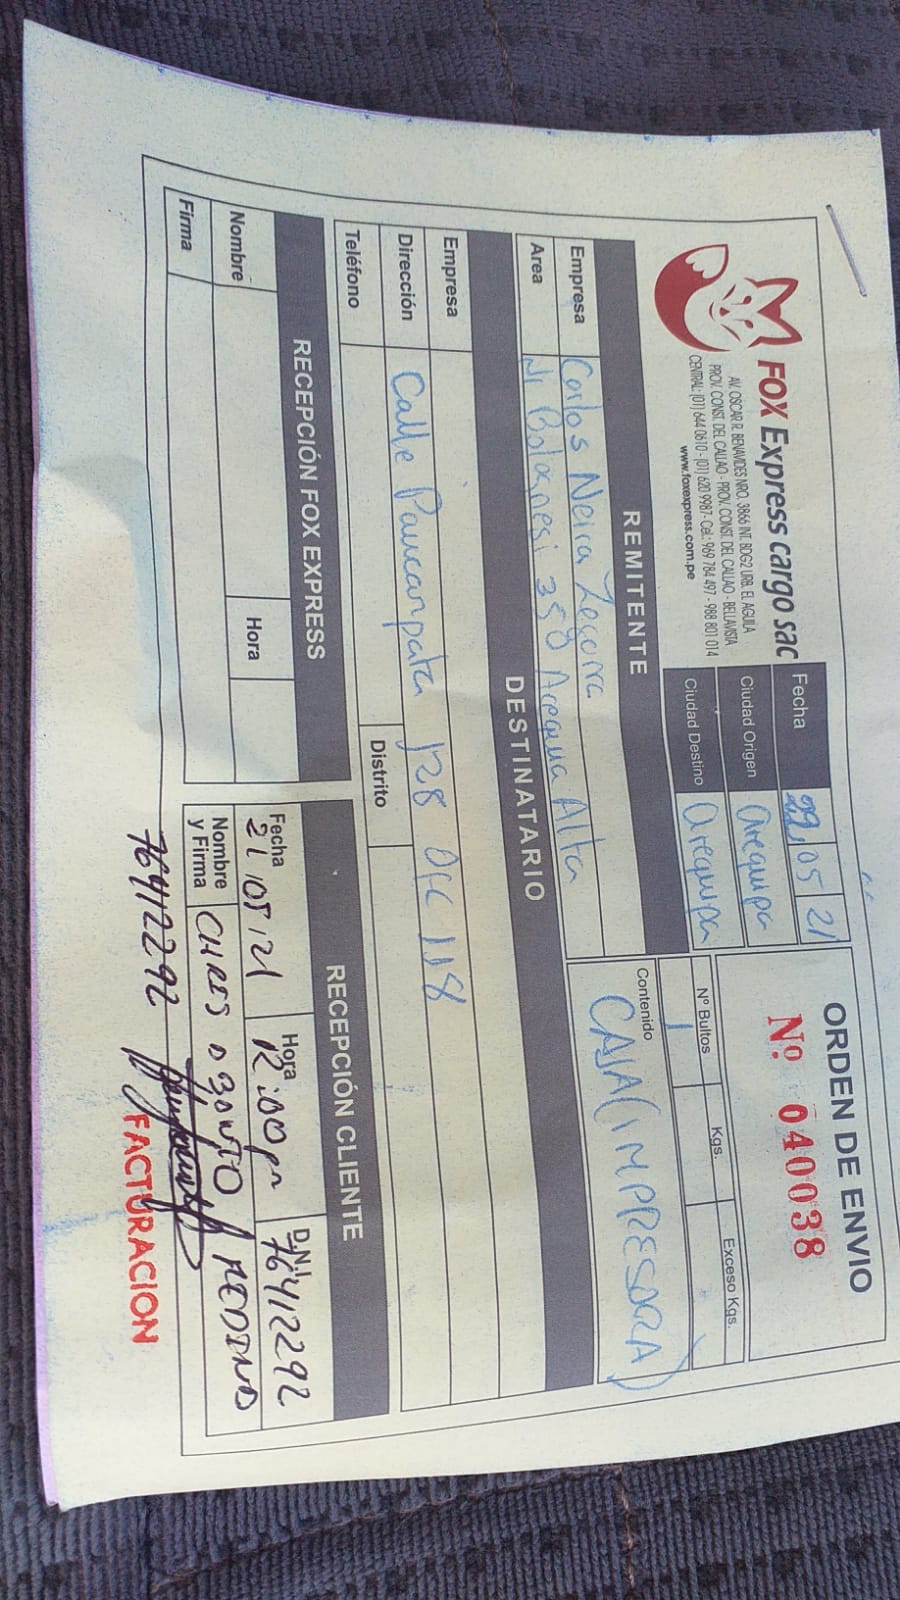 FOX Express cargo sac
AV. OSCAR R. BENAVIDES NRO. 3866 INT. BDG2 URB. EL AGUILA
PROV. CONST. DEL CALLAO - PROV. CONST. DEL CALLAO - BELLAVISTA
CENTRAL: (01) 644 0610 - (01) 620 9987- Cel.: 969 784 497 - 988 801 014
www.foxexpress.com.pe
Fecha 05 21
Ciudad Origen arequipa
Ciudad Destino arequipa
ORDEN DE ENVIO
Nº 040038
Nº Bultos 1 Kgs. Exceso Kgs.
Contenido CAJA (IMPRESORA)
REMITENTE
Empresa Carlos Neira
Area Bolognesi 350 Alta
DESTINATARIO
Empresa
Dirección Calle Paucarpata 128 Ofc 118
Teléfono Distrito
RECEPCIÓN FOX EXPRESS
Nombre Hora
Firma
RECEPCIÓN CLIENTE
Fecha 21 05 21 Hora 12:00 pm D.N.I. 76412292
Nombre y Firma
76412292
FACTURACION